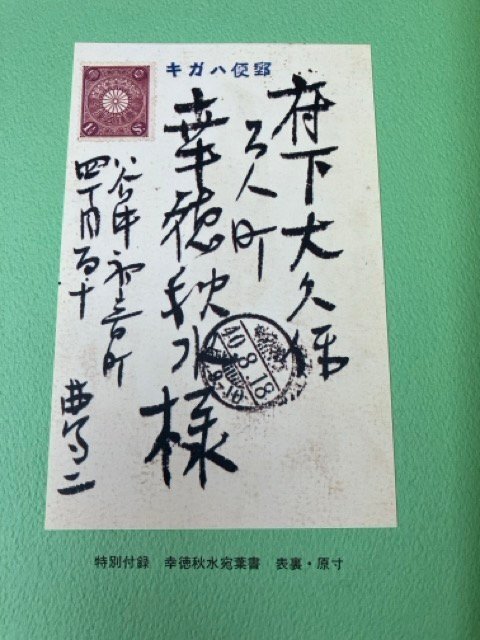 郵便ハガキ
府下大久保
百人町
幸徳秋水様
40.8.18
谷中初音町
四丁目百十
特別付録 幸徳秋水宛葉書 表裏・原寸